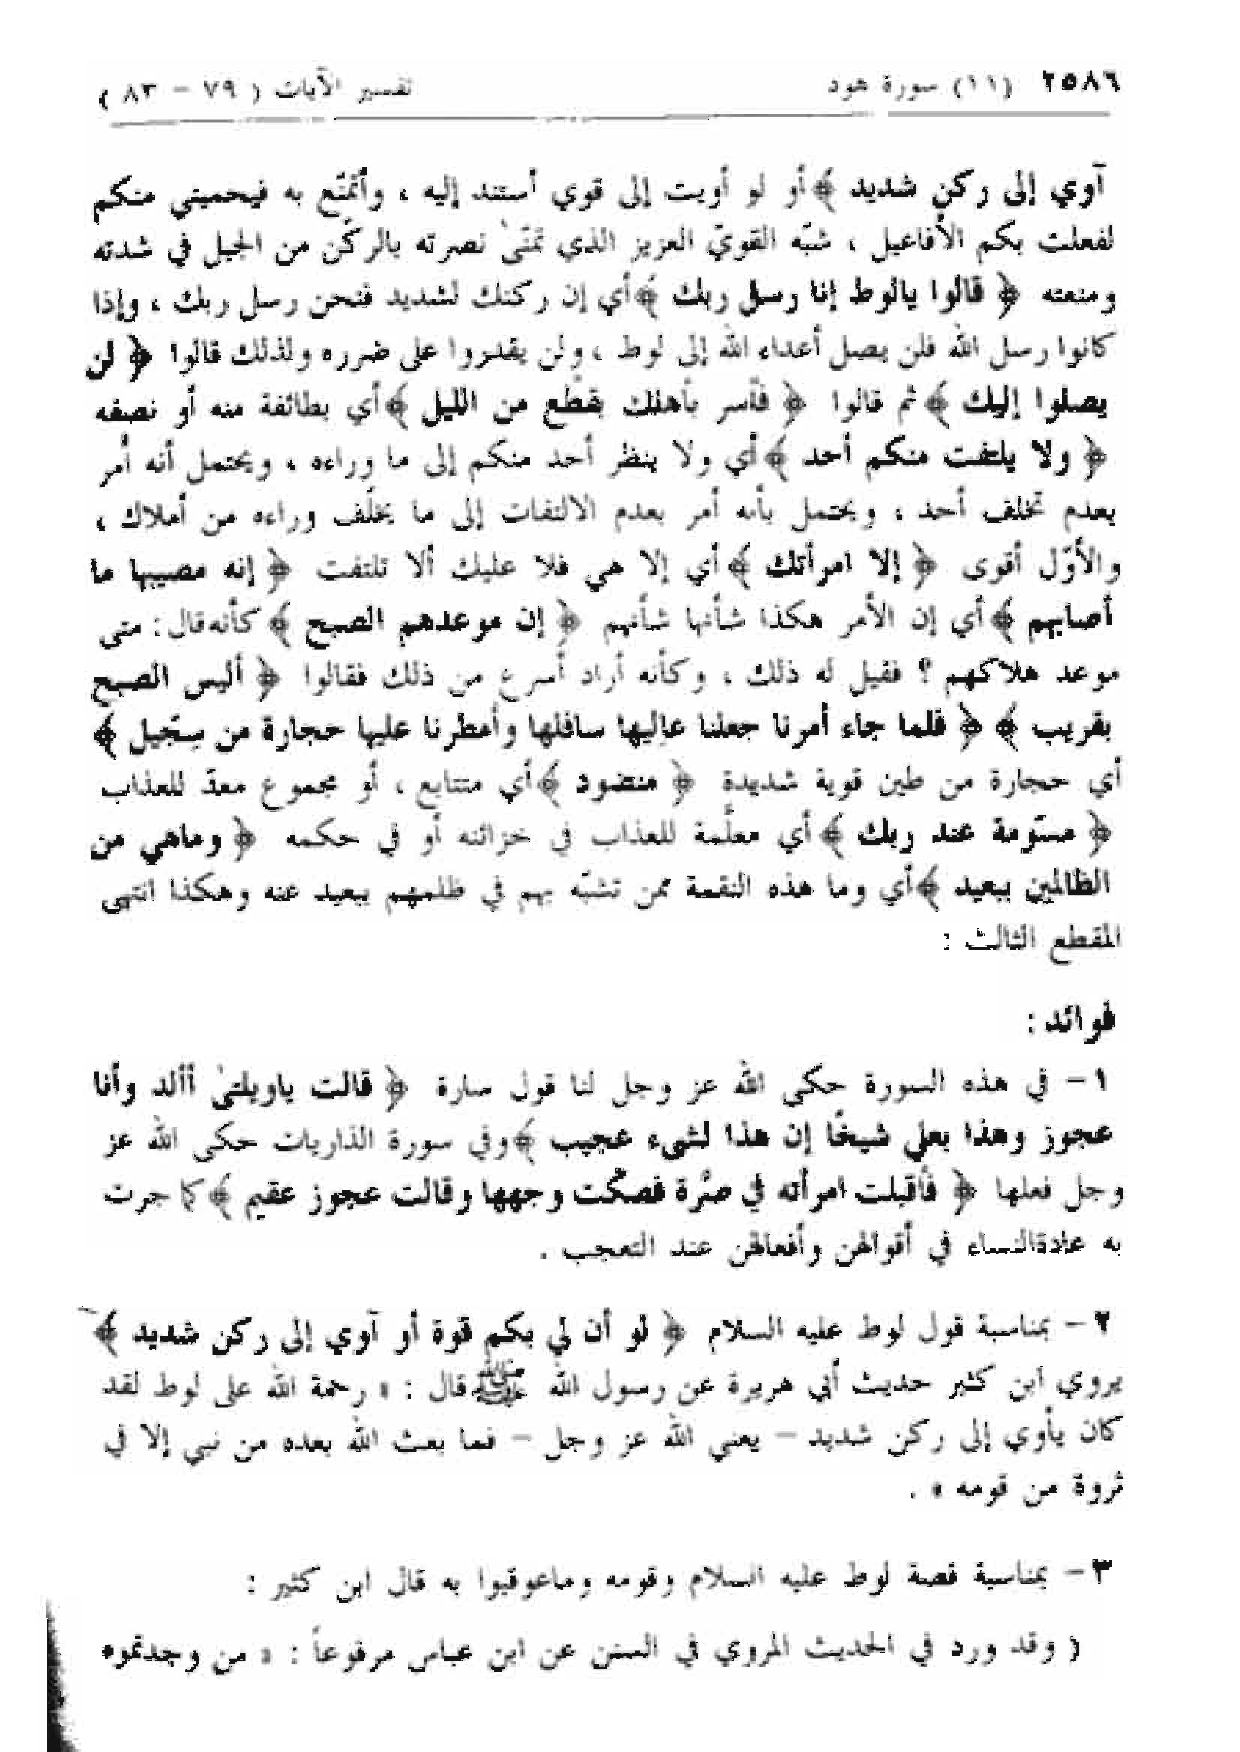 ٢٥٨٦ (١١) سورة هود تفسير الآيات ( ٧٩ – ٨٣ )
آوي إلى ركن شديد ﴾ أو لو أويت إلى قوي أستند إليه ، وأتمنّع به فيحميني منكم
لفعلت بكم الأفاعيل ، شبّه القويّ العزيز الذي تمنّىٰ نصرته بالركن من الجبل في شدته
ومنعته ﴿ قالوا يالوط إنا رسل ربك ﴾ أي إن ركنك لشديد فنحن رسل ربك ، وإذا
كانوا رسل الله فلن يصل أعداء الله إلى لوط ، ولن يقدروا على ضرره ولذلك قالوا ﴿ لن
يصلوا إليك ﴾ ثم قالوا ﴿ فأسر بأهلك بقطع من الليل ﴾ أي بطائفة منه أو نصفه
﴿ ولا يلتفت منكم أحد ﴾ أي ولا ينظر أحد منكم إلى ما وراءه ، ويحتمل أنه أمر
بعدم تخلف أحد ، ويحتمل بأنه أمر بعدم الالتفات إلى ما يخلّف وراءه من أملاك ،
والأوّل أقوى ﴿ إلا امرأتك ﴾ أي إلا هي فلا عليك ألا تلتفت ﴿ إنه مصيبها ما
أصابهم ﴾ أي إن الأمر هكذا شأنها شأنهم ﴿ إن موعدهم الصبح ﴾ كأنه قال : متى
موعد هلاكهم ؟ فقيل له ذلك ، وكأنه أراد أسرع من ذلك فقالوا ﴿ أليس الصبح
بقريب ﴾ ﴿ فلما جاء أمرنا جعلنا عاليها سافلها وأمطرنا عليها حجارة من سجّيل ﴾
أي حجارة من طين قوية شديدة ﴿ منضود ﴾ أي متتابع ، أو مجموع معدّ للعذاب
﴿ مسوّمة عند ربك ﴾ أي معلّمة للعذاب في خزائنه أو في حكمه ﴿ وماهي من
الظالمين ببعيد ﴾ أي وما هذه النقمة ممن تشبّه بهم في ظلمهم ببعيد عنه وهكذا انتهى
المقطع الثالث :
فوائد :
١ – في هذه السورة حكى الله عز وجل لنا قول سارة ﴿ قالت ياويلتىٰ أألد وأنا
عجوز وهذا بعلي شيخًا إن هذا لشيء عجيب ﴾ وفي سورة الذاريات حكى الله عز
وجل فعلها ﴿ فأقبلت امرأته في صرّة فصكّت وجهها وقالت عجوز عقيم ﴾ كما جرت
به عادةالنساء في أقوالهن وأفعالهن عند التعجب .
٢ – بمناسبة قول لوط عليه السلام ﴿ لو أن لي بكم قوة أو آوي إلى ركن شديد ﴾
يروي ابن كثير حديث أبي هريرة عن رسول الله ﷺ قال : « رحمة الله على لوط لقد
كان يأوي إلى ركن شديد – يعني الله عز وجل – فما بعث الله بعده من نبي إلا في
ثروة من قومه » .
٣ – بمناسبة قصة لوط عليه السلام وقومه وماعوقبوا به قال ابن كثير :
( وقد ورد في الحديث المروي في السنن عن ابن عباس مرفوعاً : « من وجدتموه